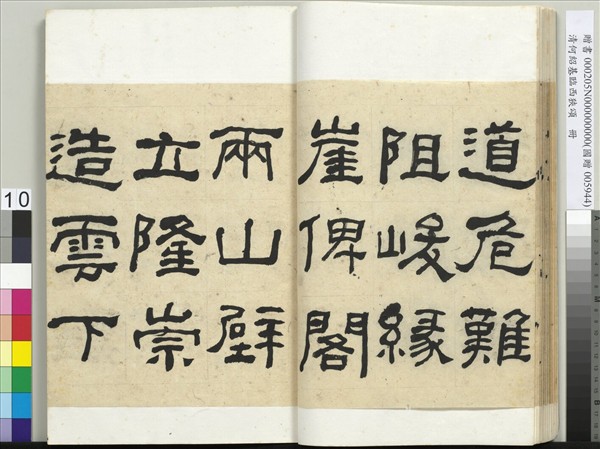 道危難
阻峻縁
崖俾閣
兩山壁
立隆崇
造雲下
贈書 000205N000000000(國贈 005944)
清何紹基臨西狹頌 冊
10